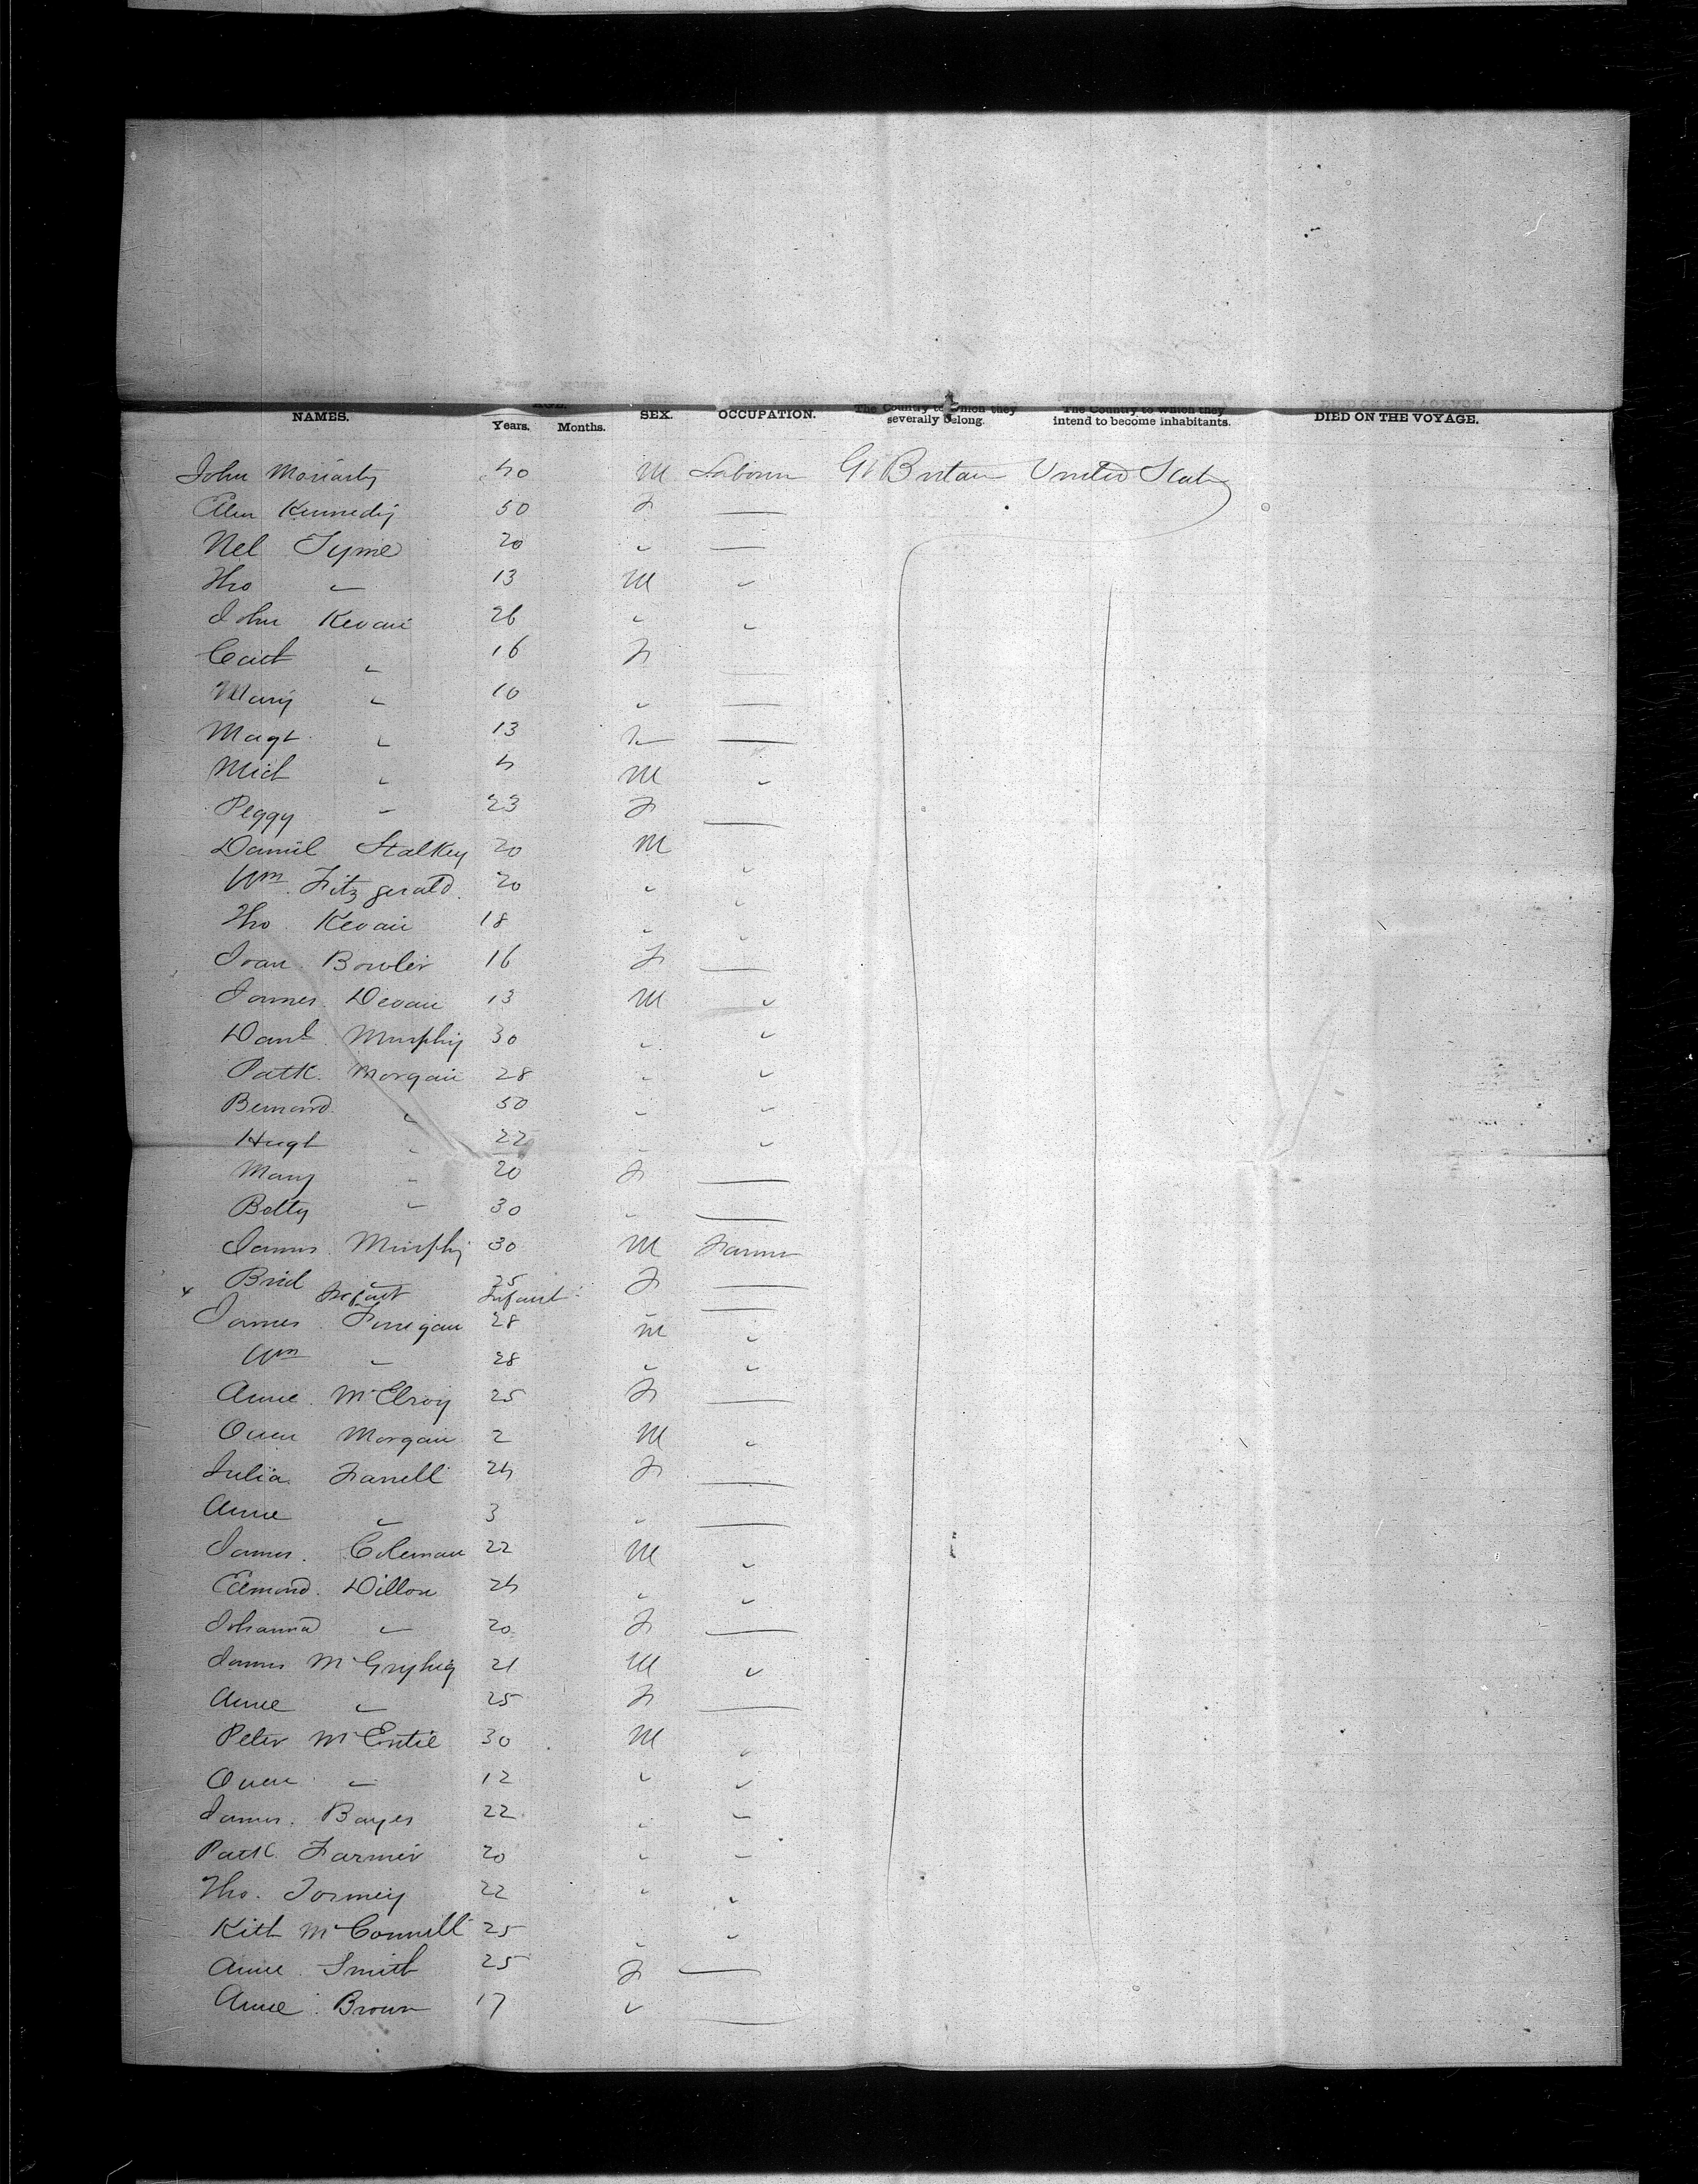 AGE.
NAMES. Years. Months. SEX. OCCUPATION. The Country to which they severally belong. The Country to which they intend to become inhabitants. DIED ON THE VOYAGE.
John Moriarty 40 M Labourer Gt Britain United States
Ellen Kennedy 50 F —
Nel Tyme 20 " —
Tho " 13 M "
John Kevane 26 " "
Cait " 16 F —
Mary " 10 " —
Magt " 13 F —
Mich " 4 M "
Peggy " 23 F —
Daniel Stalkey 20 M "
Wm. Fitzgerald 20 " "
Tho Kevane 18 " "
Joan Bowler 16 F —
James Devane 13 M "
Danl. Murphy 30 " "
Patk. Morgan 28 " "
Bernard " 50 " "
Hugh " 22 " "
Mary " 20 F —
Betty " 30 " —
James Murphy 30 M Farmer
Brid " 25 F —
x Infant Infant " —
James Finnegan 28 M "
Wm " 28 " "
Anne McElroy 25 F —
Owen Morgan 2 M "
Julia Farrell 24 F —
Anne " 3 " —
James Coleman 22 M "
Edmond Dillon 24 " "
Johanna " 20 F —
James 21 M "
Anne " 25 F —
Peter McEntie 30 M "
Owen " 12 " "
James Bayes 22 " "
Patk Farmer 20 " "
Tho. Tormey 22 " "
Kitt McConnell 25 " "
Anne Smith 25 F —
Anne Brown 17 " —